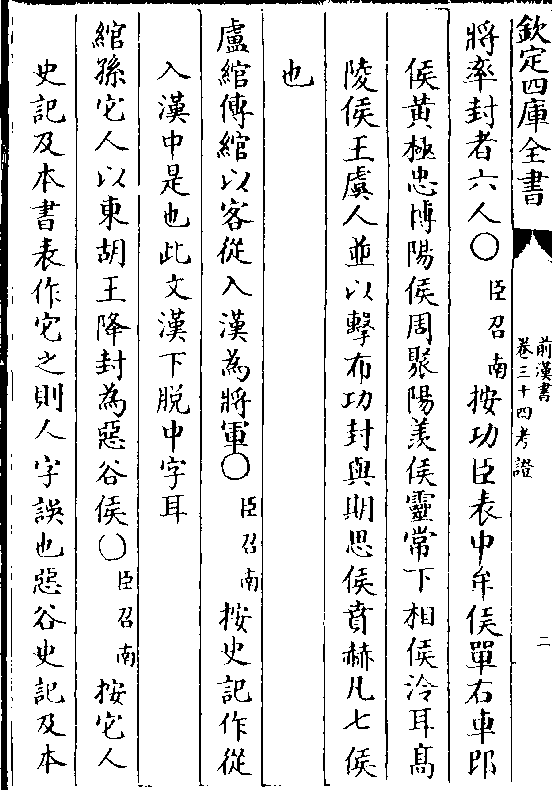 欽定四庫全書
前漢書
卷三十四考證
二
將率封者六人○臣召南按功臣表中牟侯單右車邔
侯黄極忠博陽侯周聚陽羨侯靈常下相侯泠耳髙
陵侯王虞人並以擊布功封與期思侯賁赫凡七侯
也
盧綰傳綰以客從入漢為將軍○臣召南按史記作從
入漢中是也此文漢下脱中字耳
綰孫它人以東胡王降封為惡谷侯○臣召南按它人
史記及本書表作它之則人字誤也惡谷史記及本